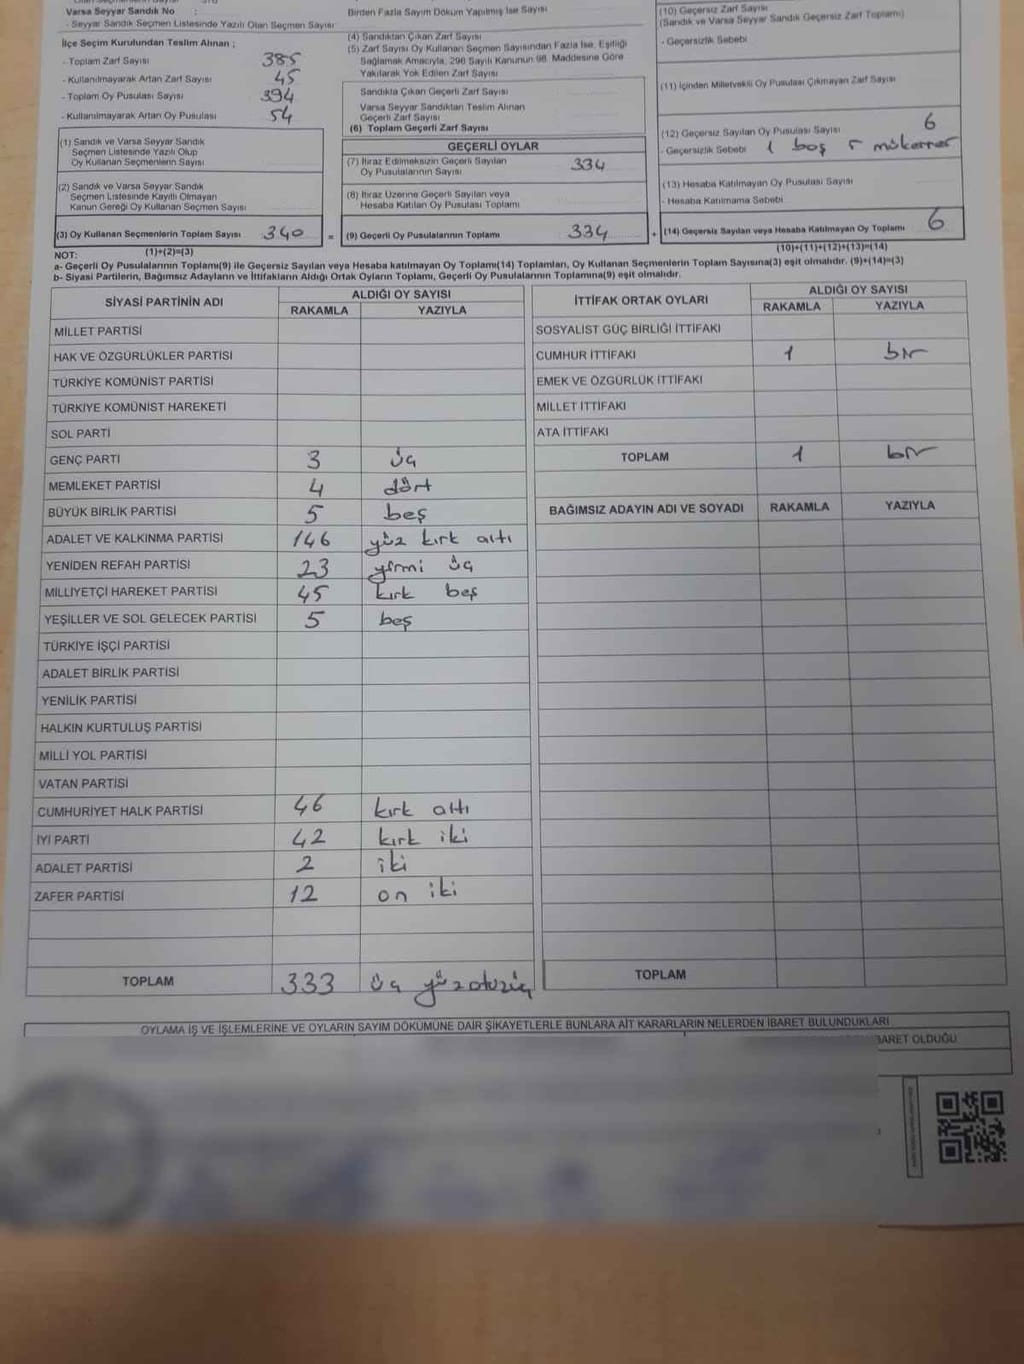 Varsa Seyyar Sandık No :
- Seyyar Sandık Seçmen Listesinde Yazılı Olan Seçmen Sayısı
İlçe Seçim Kurulundan Teslim Alınan ;
- Toplam Zarf Sayısı 385
- Kullanılmayarak Artan Zarf Sayısı 45
- Toplam Oy Pusulası Sayısı 394
- Kullanılmayarak Artan Oy Pusulası 54
(1) Sandık ve Varsa Seyyar Sandık
Seçmen Listesinde Yazılı Olup
Oy Kullanan Seçmenlerin Sayısı
(2) Sandık ve Varsa Seyyar Sandık
Seçmen Listesinde Kayıtlı Olmayan
Kanun Gereği Oy Kullanan Seçmen Sayısı
(3) Oy Kullanan Seçmenlerin Toplam Sayısı 340 =
(1)+(2)=(3)
Birden Fazla Sayım Döküm Yapılmış İse Sayısı
(4) Sandıktan Çıkan Zarf Sayısı
(5) Zarf Sayısı Oy Kullanan Seçmen Sayısından Fazla İse, Eşitliği
Sağlamak Amacıyla, 298 Sayılı Kanunun 98. Maddesine Göre
Yakılarak Yok Edilen Zarf Sayısı
Sandıkta Çıkan Geçerli Zarf Sayısı
Varsa Seyyar Sandıktan Teslim Alınan
Geçerli Zarf Sayısı
(6) Toplam Geçerli Zarf Sayısı
GEÇERLİ OYLAR
(7) İtiraz Edilmeksizin Geçerli Sayılan
Oy Pusulalarının Sayısı 334
(8) İtiraz Üzerine Geçerli Sayılan veya
Hesaba Katılan Oy Pusulası Toplamı
(9) Geçerli Oy Pusulalarının Toplamı 334 +
(10) Geçersiz Zarf Sayısı
(Sandık ve Varsa Seyyar Sandık Geçersiz Zarf Toplamı)
- Geçersizlik Sebebi
(11) İçinden Milletvekili Oy Pusulası Çıkmayan Zarf Sayısı
(12) Geçersiz Sayılan Oy Pusulası Sayısı 6
- Geçersizlik Sebebi 1 boş 5 mükerrer
(13) Hesaba Katılmayan Oy Pusulası Sayısı
- Hesaba Katılmama Sebebi
(14) Geçersiz Sayılan veya Hesaba Katılmayan Oy Toplamı 6
(10)+(11)+(12)+(13)=(14)
NOT:
a- Geçerli Oy Pusulalarının Toplamı(9) ile Geçersiz Sayılan veya Hesaba katılmayan Oy Toplamı(14) Toplamları, Oy Kullanan Seçmenlerin Toplam Sayısına(3) eşit olmalıdır. (9)+(14)=(3)
b- Siyasi Partilerin, Bağımsız Adayların ve İttifakların Aldığı Ortak Oyların Toplamı, Geçerli Oy Pusulalarının Toplamına(9) eşit olmalıdır.
SİYASİ PARTİNİN ADI ALDIĞI OY SAYISI
RAKAMLA YAZIYLA
MİLLET PARTİSİ
HAK VE ÖZGÜRLÜKLER PARTİSİ
TÜRKİYE KOMÜNİST PARTİSİ
TÜRKİYE KOMÜNİST HAREKETİ
SOL PARTİ
GENÇ PARTİ 3 üç
MEMLEKET PARTİSİ 4 dört
BÜYÜK BİRLİK PARTİSİ 5 beş
ADALET VE KALKINMA PARTİSİ 146 yüz kırk altı
YENİDEN REFAH PARTİSİ 23 yirmi üç
MİLLİYETÇİ HAREKET PARTİSİ 45 kırk beş
YEŞİLLER VE SOL GELECEK PARTİSİ 5 beş
TÜRKİYE İŞÇİ PARTİSİ
ADALET BİRLİK PARTİSİ
YENİLİK PARTİSİ
HALKIN KURTULUŞ PARTİSİ
MİLLİ YOL PARTİSİ
VATAN PARTİSİ
CUMHURİYET HALK PARTİSİ 46 kırk altı
İYİ PARTİ 42 kırk iki
ADALET PARTİSİ 2 iki
ZAFER PARTİSİ 12 on iki
TOPLAM 333 üç yüz otuz üç
İTTİFAK ORTAK OYLARI ALDIĞI OY SAYISI
RAKAMLA YAZIYLA
SOSYALİST GÜÇ BİRLİĞİ İTTİFAKI
CUMHUR İTTİFAKI 1 bir
EMEK VE ÖZGÜRLÜK İTTİFAKI
MİLLET İTTİFAKI
ATA İTTİFAKI
TOPLAM 1 bir
BAĞIMSIZ ADAYIN ADI VE SOYADI RAKAMLA YAZIYLA
TOPLAM
OYLAMA İŞ VE İŞLEMLERİNE VE OYLARIN SAYIM DÖKÜMÜNE DAİR ŞİKAYETLERLE BUNLARA AİT KARARLARIN NELERDEN İBARET BULUNDUKLARI
BARET OLDUĞU